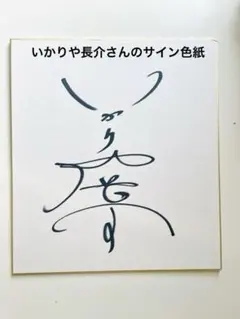 いかりや長介さんのサイン色紙
いかりや